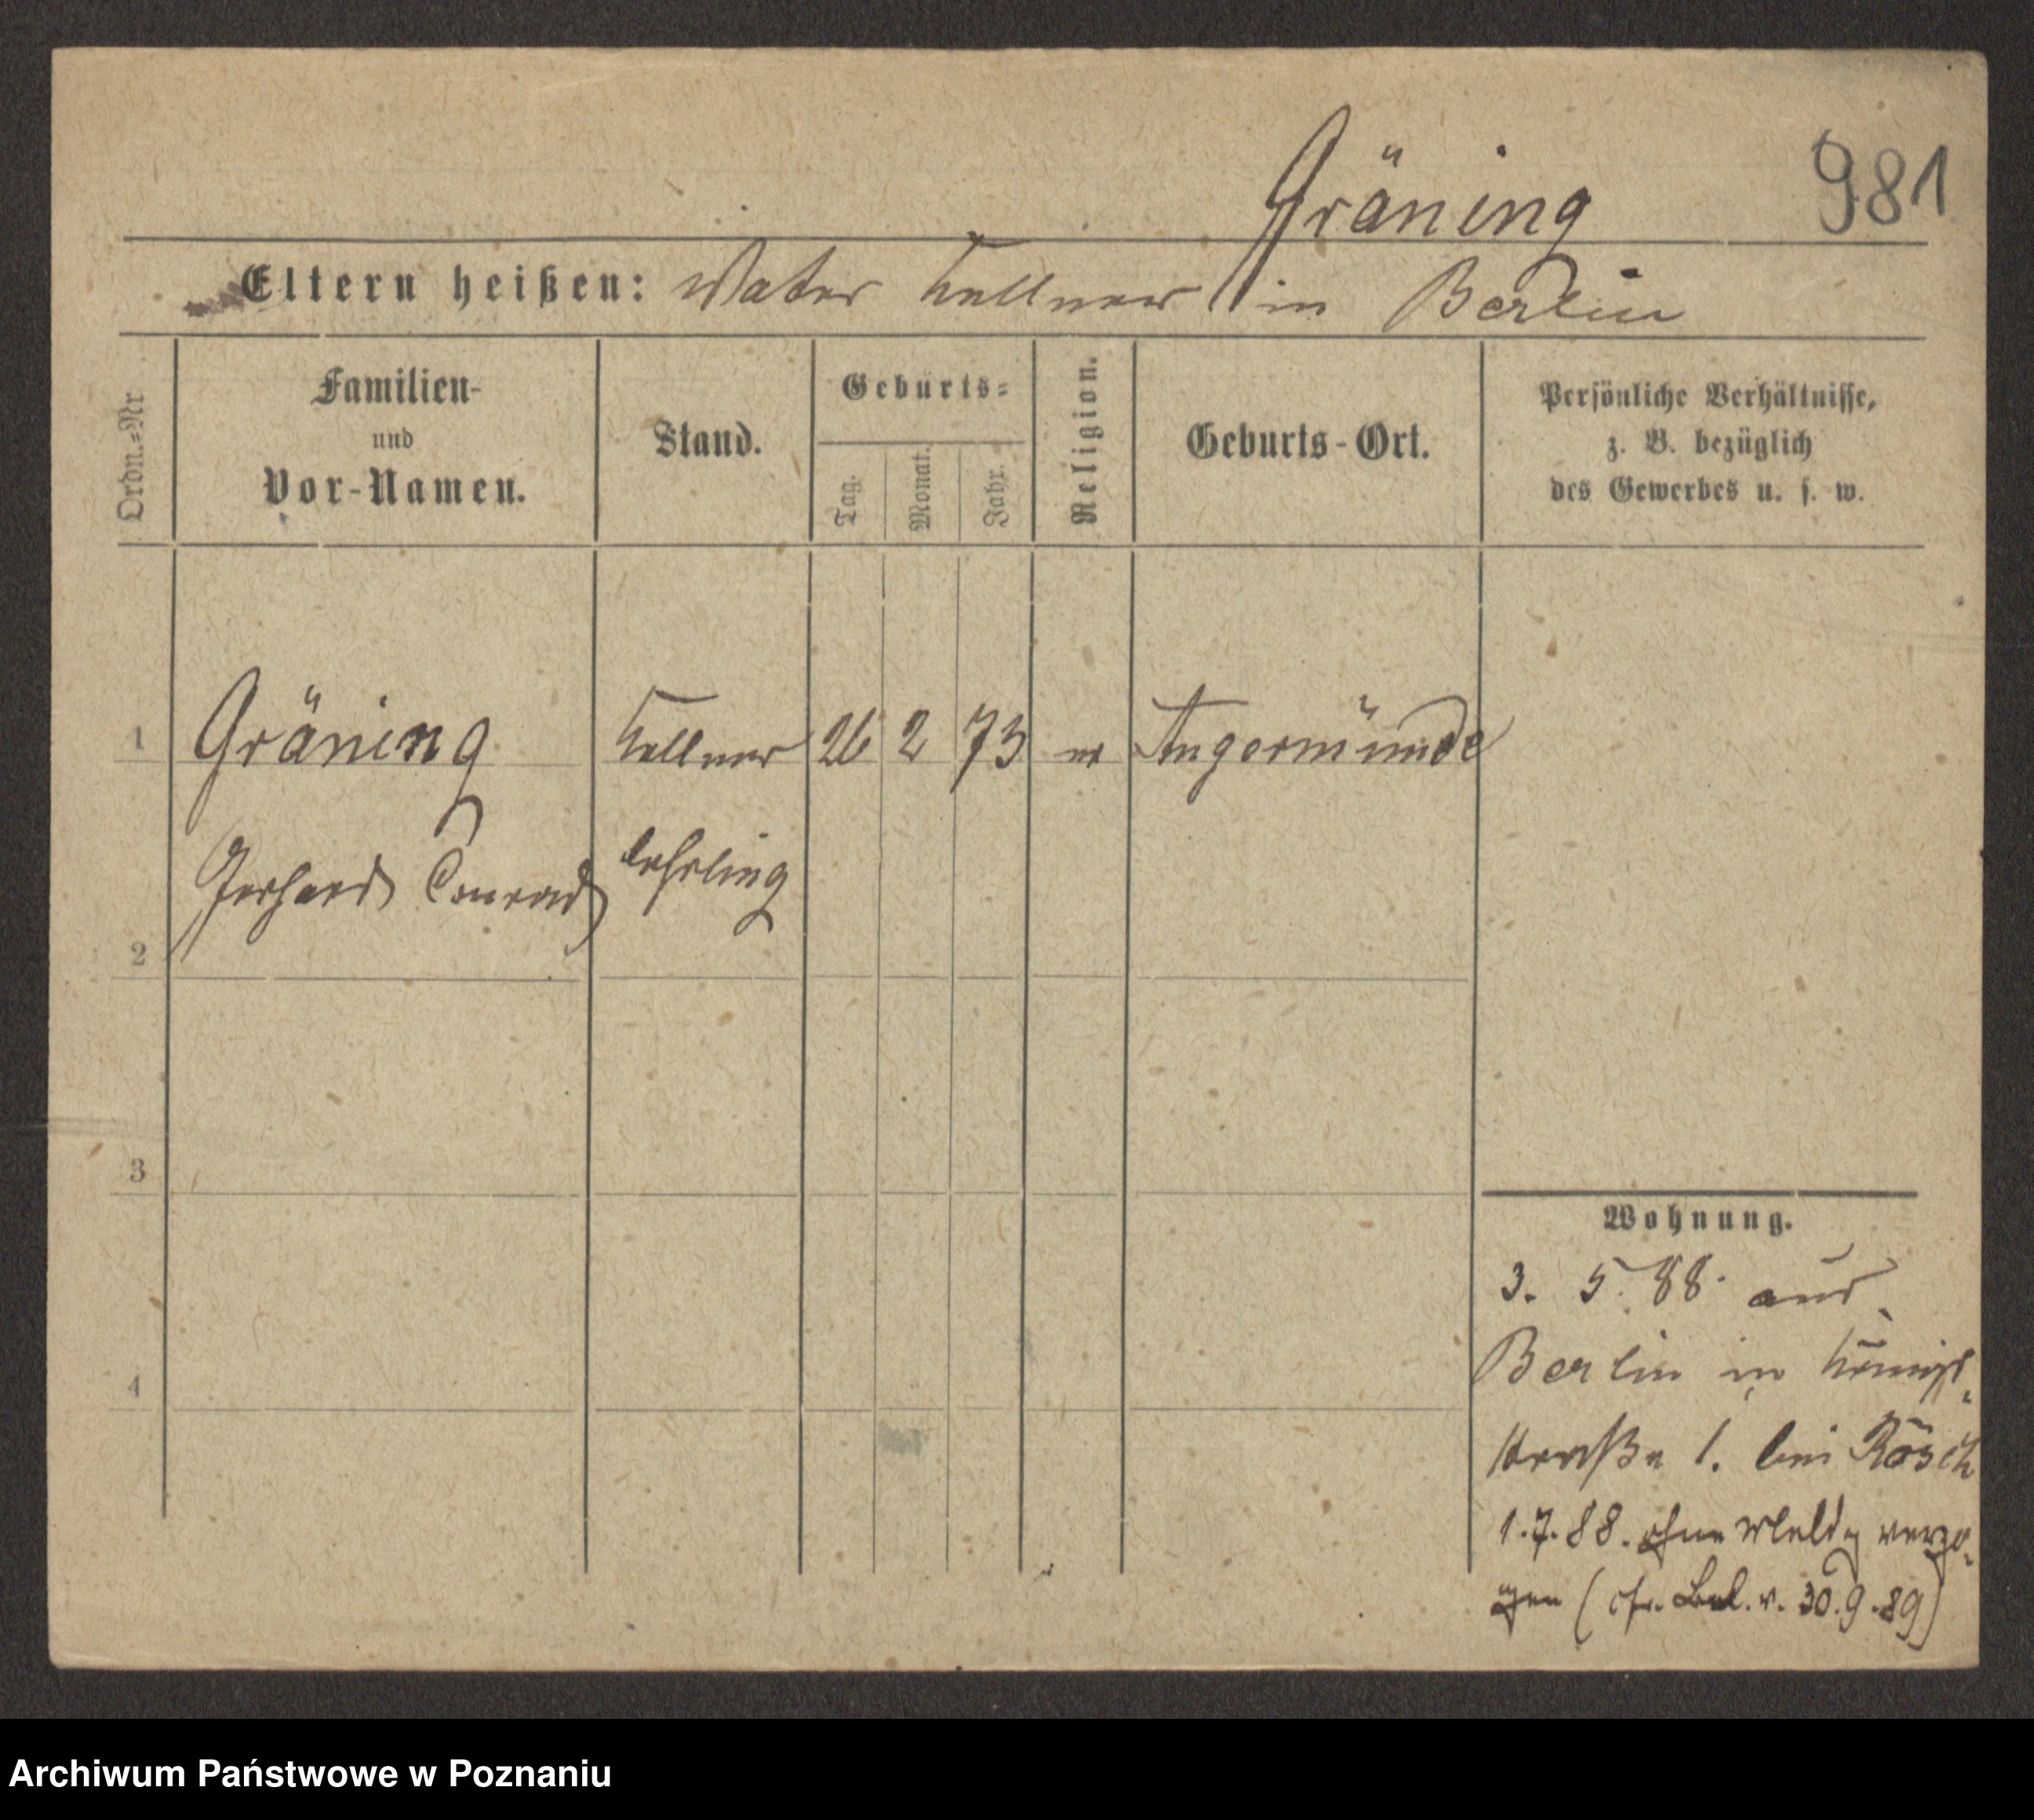 Gräning
981
Eltern heißen: Vater Kellner in Berlin
Ordn.=Nr
Familien-
und
Vor-Namen.
Stand.
Geburts=
Tag.
Monat.
Jahr.
Religion.
Geburts-Ort.
Persönliche Verhältnisse,
z. B. bezüglich
des Gewerbes u. s. w.
1 Gräning Kellner 26 2 73 Angermünde
Gerhard Conrad lehrling
2
3
4
Wohnung.
3. 5. 88. aus
Berlin in Königs
straße 1. bei Rösch
1.7.88. ohne Meldg verzo-
gen (cfr. Bel. v. 30.9.89)
Archiwum Państwowe w Poznaniu